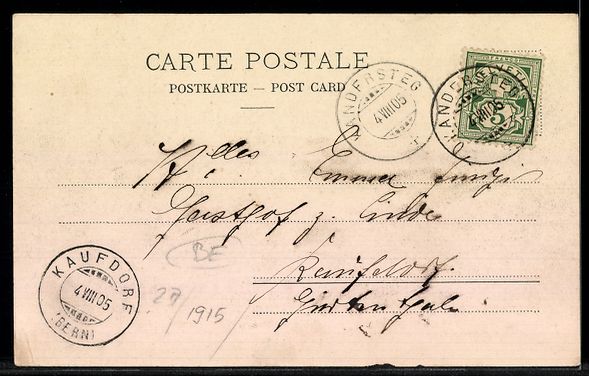 CARTE POSTALE
POSTKARTE — POST CARD
KANDERSTEG
4 VIII 05
KANDERSTEG
VIII 05
FRANCO
HELVETIA
5
Emma
Gasthof z. Linde
Kaufdorf
Gürbenthal
BE
27/1915
KAUFDORF
4 VIII 05
(BERN)